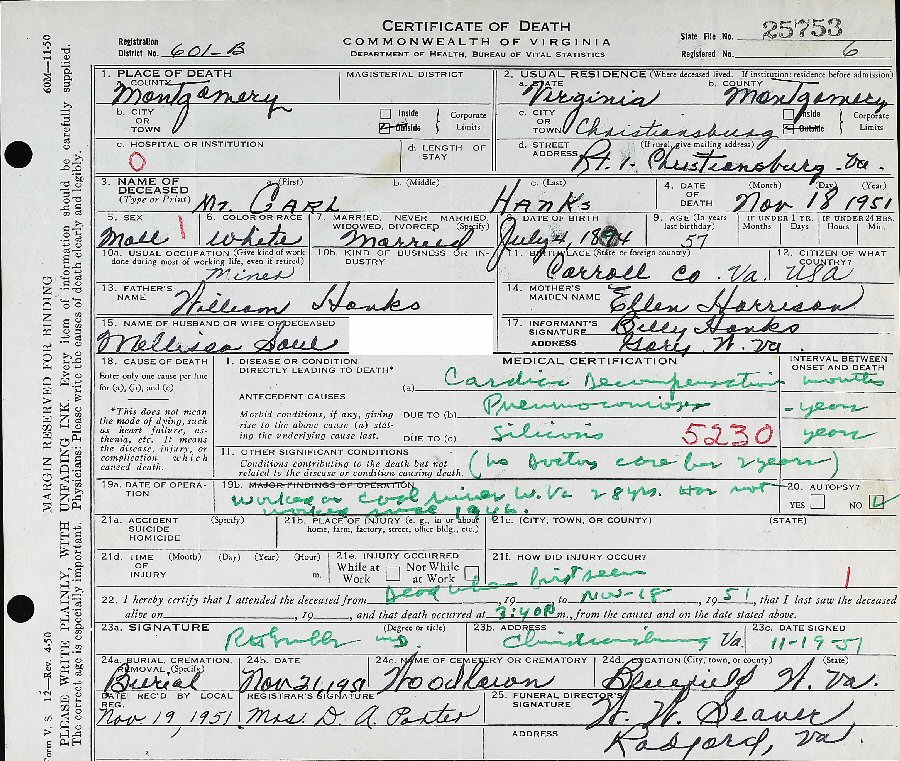 CERTIFICATE OF DEATH
COMMONWEALTH OF VIRGINIA
DEPARTMENT OF HEALTH, BUREAU OF VITAL STATISTICS
Registration District No. 601-B
State File No. 25753
Registered No. 6
1. PLACE OF DEATH
a. COUNTY Montgomery
MAGISTERIAL DISTRICT
b. CITY OR TOWN
Inside
Outside
Corporate Limits
c. HOSPITAL OR INSTITUTION 0
d. LENGTH OF STAY
2. USUAL RESIDENCE (Where deceased lived. If institution: residence before admission)
a. STATE Virginia
b. COUNTY Montgomery
c. CITY OR TOWN Christiansburg
Inside
Outside
Corporate Limits
d. STREET ADDRESS (If rural, give mailing address)
Rt. 1. Christiansburg. Va.
3. NAME OF DECEASED (Type or Print)
a. (First) Mr CARL
b. (Middle)
c. (Last) HANKS
4. DATE OF DEATH (Month) (Day) (Year)
Nov 18 1951
5. SEX Male 1
6. COLOR OR RACE White
7. MARRIED, NEVER MARRIED, WIDOWED, DIVORCED (Specify)
Married
8. DATE OF BIRTH July 4, 1894
9. AGE (In years last birthday) 57
IF UNDER 1 YR. Months Days
IF UNDER 24 HRS. Hours Min.
10a. USUAL OCCUPATION (Give kind of work done during most of working life, even if retired)
Miner
10b. KIND OF BUSINESS OR INDUSTRY
11. BIRTHPLACE (State or foreign country)
Carroll Co. Va.
12. CITIZEN OF WHAT COUNTRY?
USA
13. FATHER'S NAME William Hanks
14. MOTHER'S MAIDEN NAME Ellen Harrison
15. NAME OF HUSBAND OR WIFE OF DECEASED
Mellissa
17. INFORMANT'S SIGNATURE Billy Hanks
ADDRESS Gary W. Va
18. CAUSE OF DEATH
Enter only one cause per line for (a), (b), and (c)
*This does not mean the mode of dying, such as heart failure, asthenia, etc. It means the disease, injury, or complication which caused death.
MEDICAL CERTIFICATION
INTERVAL BETWEEN ONSET AND DEATH
I. DISEASE OR CONDITION DIRECTLY LEADING TO DEATH*
(a) Cardiac Decompensation months
ANTECEDENT CAUSES
Morbid conditions, if any, giving rise to the above cause (a) stating the underlying cause last.
DUE TO (b) Pneumoconiosis - years
DUE TO (c) Silicosis 5230 years
II. OTHER SIGNIFICANT CONDITIONS
Conditions contributing to the death but not related to the disease or condition causing death.
(No Doctors care for 2 years)
19a. DATE OF OPERATION
19b. MAJOR FINDINGS OF OPERATION
worked in coal mines W. Va 28 yrs. Has not worked since 1946.
20. AUTOPSY?
YES NO
21a. ACCIDENT SUICIDE HOMICIDE (Specify)
21b. PLACE OF INJURY (e. g., in or about home, farm, factory, street, office bldg., etc.)
21c. (CITY, TOWN, OR COUNTY) (STATE)
21d. TIME OF INJURY (Month) (Day) (Year) (Hour) m.
21e. INJURY OCCURRED
While at Work Not While at Work
21f. HOW DID INJURY OCCUR?
Dead when first seen 1
22. I hereby certify that I attended the deceased from , 19 , to Nov-18, 1951, that I last saw the deceased
alive on , 19 , and that death occurred at 3:40P m., from the causes and on the date stated above.
23a. SIGNATURE (Degree or title)
MD.
23b. ADDRESS
Christiansburg Va.
23c. DATE SIGNED
11-19-51
24a. BURIAL, CREMATION, REMOVAL (Specify)
Burial
24b. DATE
Nov. 21, 1951
24c. NAME OF CEMETERY OR CREMATORY
Woodlawn
24d. LOCATION (City, town, or county) (State)
Bluefield W. Va.
DATE REC'D BY LOCAL REG.
Nov 19, 1951
REGISTRAR'S SIGNATURE
Mrs. D. A. Porter
25. FUNERAL DIRECTOR'S SIGNATURE
W. W. Seaver
ADDRESS
Radford, Va.
Form V. S. 12—Rev. 4-50
60M—11-50
MARGIN RESERVED FOR BINDING
PLEASE WRITE PLAINLY, WITH UNFADING INK. Every item of information should be carefully supplied.
The correct age is especially important. Physicians: Please write the causes of death clearly and legibly.